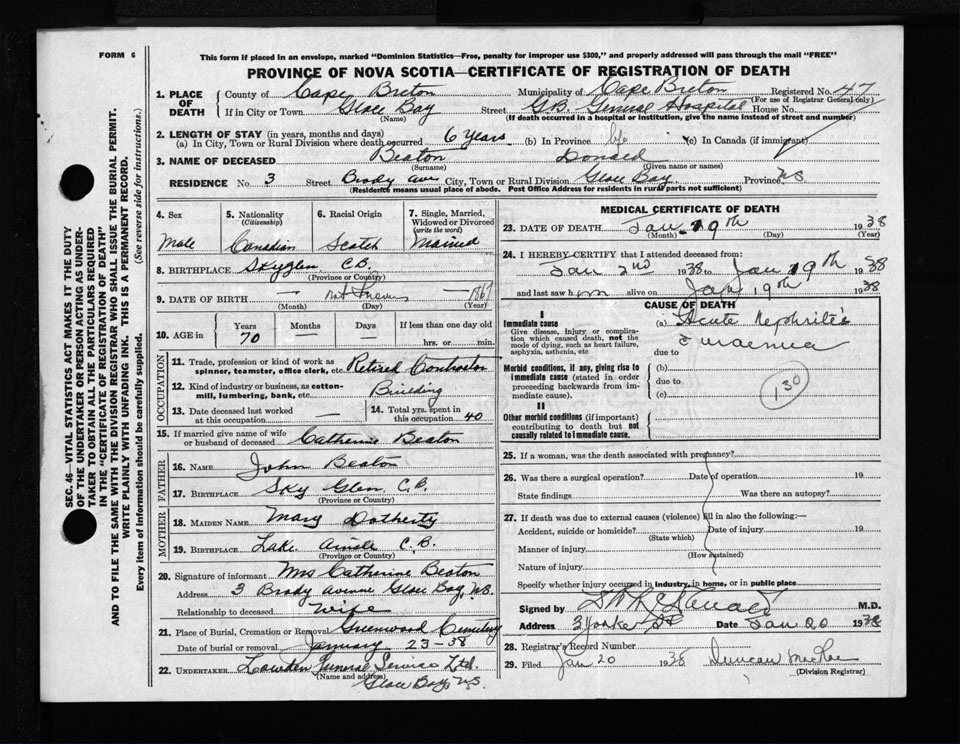 FORM 6
This form if placed in an envelope, marked "Dominion Statistics—Free, penalty for improper use $300," and properly addressed will pass through the mail "FREE"
PROVINCE OF NOVA SCOTIA—CERTIFICATE OF REGISTRATION OF DEATH
SEC. 46—VITAL STATISTICS ACT MAKES IT THE DUTY
OF THE UNDERTAKER OR PERSON ACTING AS UNDER-
TAKER TO OBTAIN ALL THE PARTICULARS REQUIRED
IN THE "CERTIFICATE OF REGISTRATION OF DEATH"
AND TO FILE THE SAME WITH THE DIVISION REGISTRAR WHO SHALL ISSUE THE BURIAL PERMIT.
WRITE PLAINLY WITH UNFADING INK. THIS IS A PERMANENT RECORD.
Every item of information should be carefully supplied. (See reverse side for instructions.)
1. PLACE OF DEATH County of Cape Breton Municipality of Cape Breton Registered No. 47
(For use of Registrar General only)
If in City or Town Glace Bay Street G.B. General Hospital House No.
(Name) (If death occurred in a hospital or institution, give the name instead of street and number)
2. LENGTH OF STAY (in years, months and days)
(a) In City, Town or Rural Division where death occurred 6 Years (b) In Province life (c) In Canada (if immigrant)
3. NAME OF DECEASED Beaton Donald
(Surname) (Given name or names)
RESIDENCE No. 3 Street Brody Ave City, Town or Rural Division Glace Bay Province NS
(Residents means usual place of abode. Post Office Address for residents in rural parts not sufficient)
4. Sex Male
5. Nationality (Citizenship) Canadian
6. Racial Origin Scotch
7. Single, Married, Widowed or Divorced (write the word) Married
8. BIRTHPLACE Skyglen C.B.
(Province or Country)
9. DATE OF BIRTH — not known — 1867
(Month) (Day) (Year)
10. AGE in Years 70 Months — Days — If less than one day old hrs. or min.
OCCUPATION
11. Trade, profession or kind of work as spinner, teamster, office clerk, etc. Retired Contractor
12. Kind of industry or business, as cotton-mill, lumbering, bank, etc. Building
13. Date deceased last worked at this occupation —
14. Total yrs. spent in this occupation 40
15. If married give name of wife or husband of deceased Catherine Beaton
FATHER
16. NAME John Beaton
17. BIRTHPLACE Sky Glen C.B.
(Province or Country)
MOTHER
18. MAIDEN NAME Mary Dotherty
19. BIRTHPLACE Lake Ainslie C.B.
(Province or Country)
20. Signature of informant Mrs Catherine Beaton
Address 3 Brody Avenue Glace Bay, N.S.
Relationship to deceased wife
21. Place of Burial, Cremation or Removal Greenwood Cemetery
Date of burial or removal January 23-38
22. UNDERTAKER Lowden Funeral Service Ltd.
(Name and address)
Glace Bay, N.S.
MEDICAL CERTIFICATE OF DEATH
23. DATE OF DEATH Jan 19th 1938
(Month) (Day) (Year)
24. I HEREBY CERTIFY that I attended deceased from:
Jan 2nd 1938 to Jan 19th 1938
and last saw him alive on Jan 19th 1938
CAUSE OF DEATH
I
Immediate cause
Give disease, injury or complication which caused death, not the mode of dying, such as heart failure, asphyxia, asthenia, etc
(a) Acute Nephritis
c uraemia
due to
Morbid conditions, if any, giving rise to immediate cause (stated in order proceeding backwards from immediate cause).
(b)
due to
(c)
130
II
Other morbid conditions (if important) contributing to death but not causally related to immediate cause.
25. If a woman, was the death associated with pregnancy?
26. Was there a surgical operation? Date of operation 19
State findings Was there an autopsy?
27. If death was due to external causes (violence) fill in also the following:—
Accident, suicide or homicide? Date of injury 19
(State which)
Manner of injury
(How sustained)
Nature of injury
Specify whether injury occurred in industry, in home, or in public place
Signed by M.D.
Address 3 Yorke St Date Jan 20 1938
28. Registrar's Record Number
29. Filed Jan 20 1938 Duncan McRae
(Division Registrar)